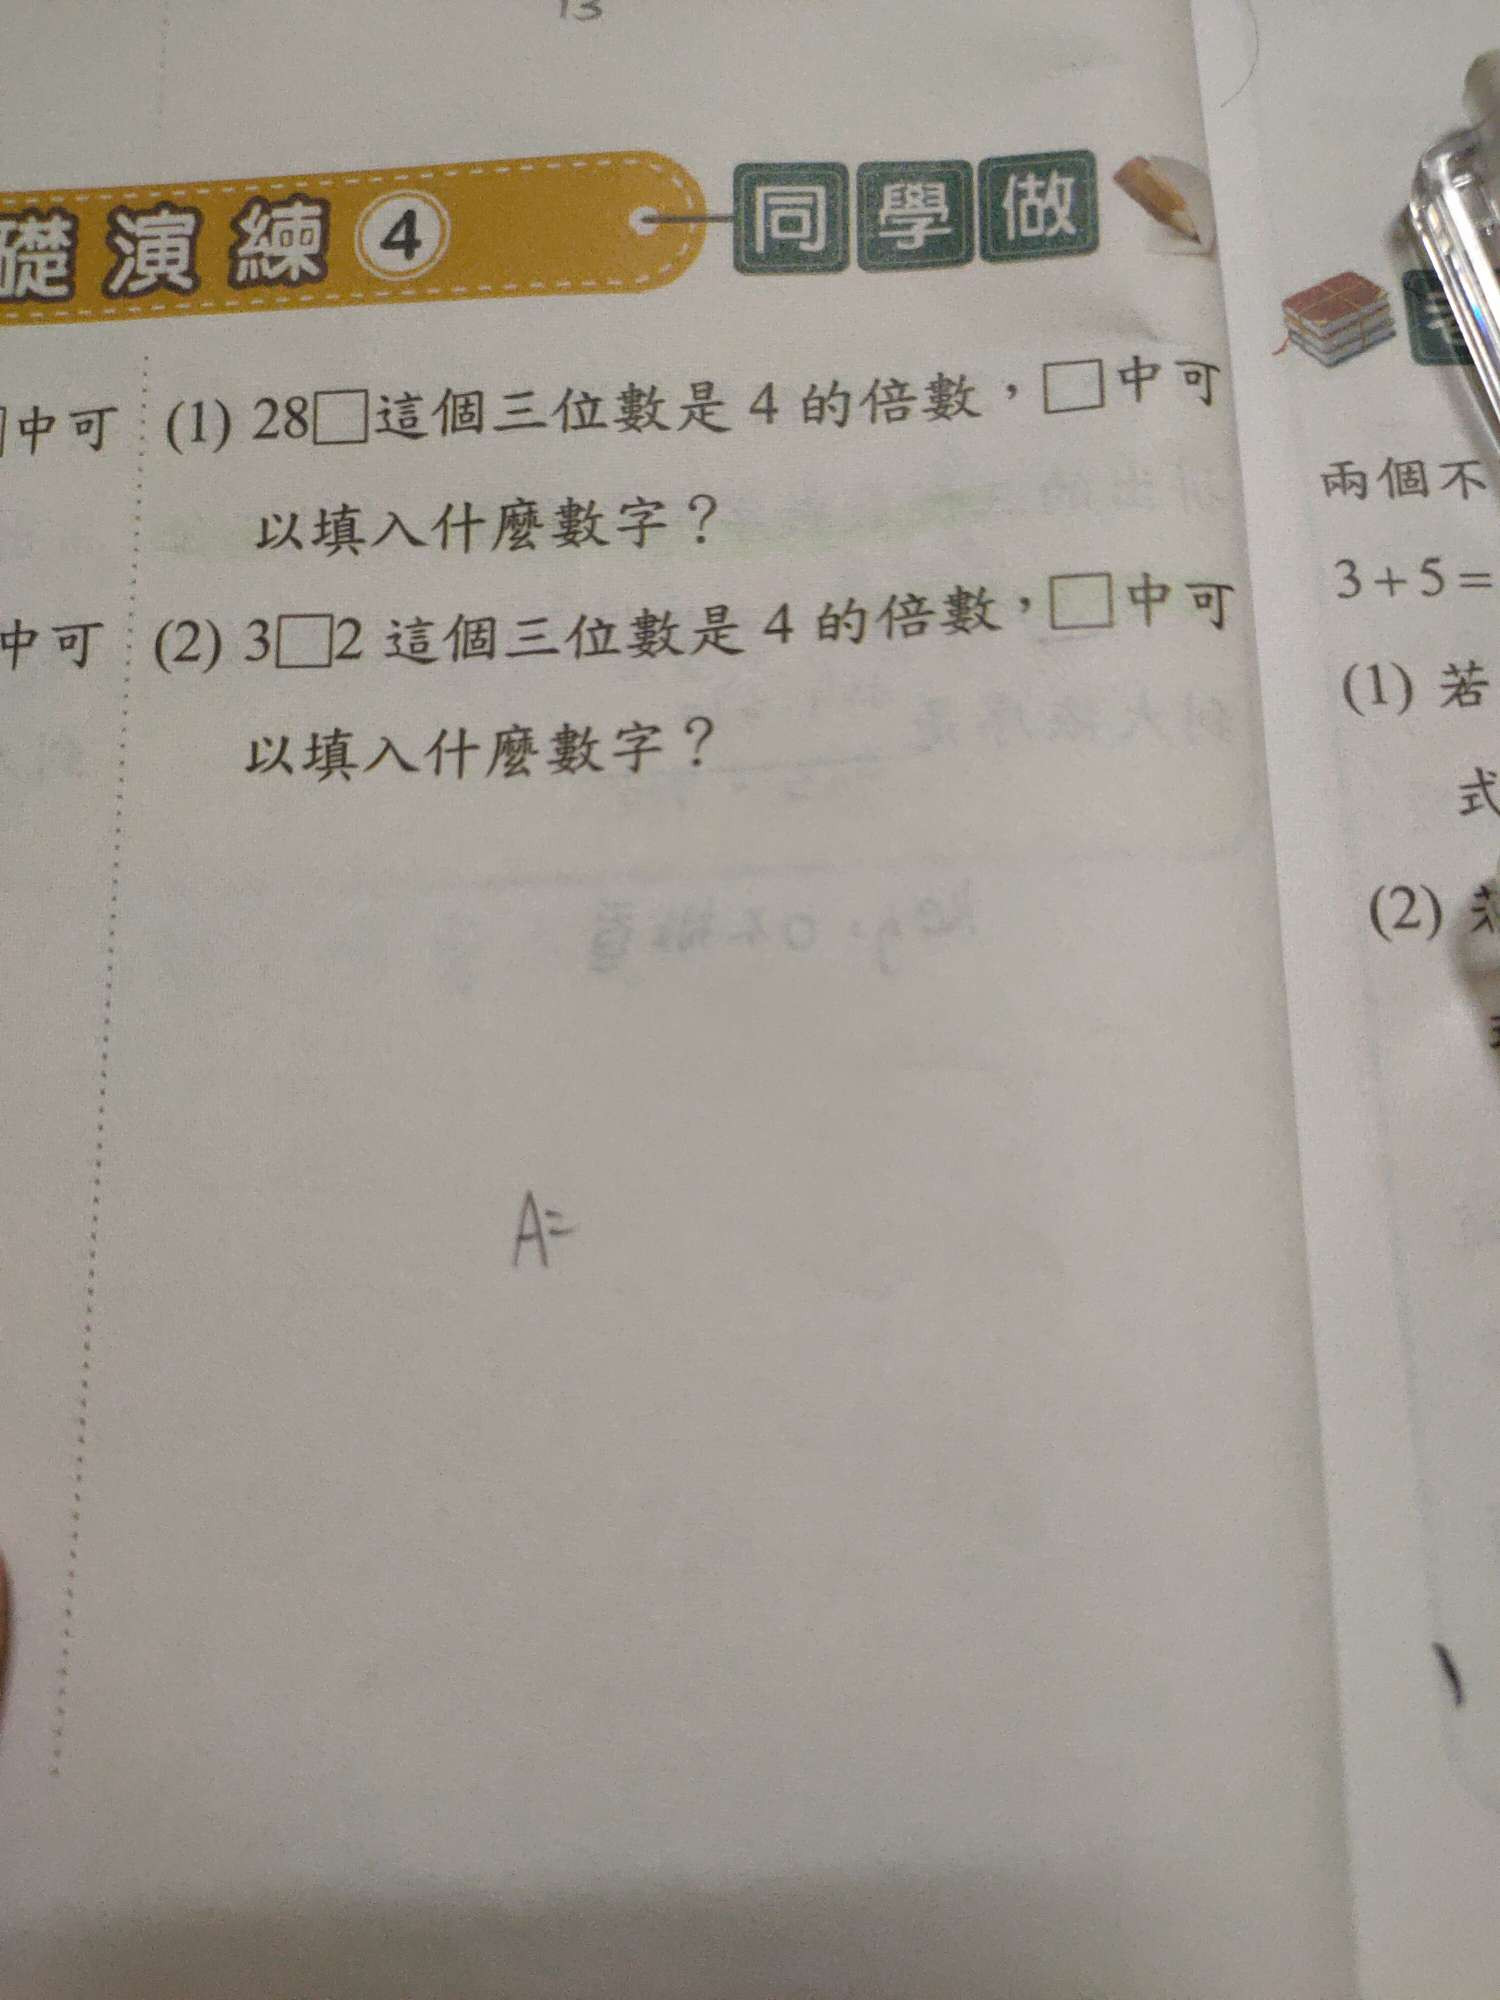 13
礎演練4 同學做
中可
(1) 28□這個三位數是 4 的倍數，□中可
以填入什麼數字？
中可
(2) 3□2 這個三位數是 4 的倍數，□中可
以填入什麼數字？
A=
兩個不
3+5=
(1) 若
式
(2)